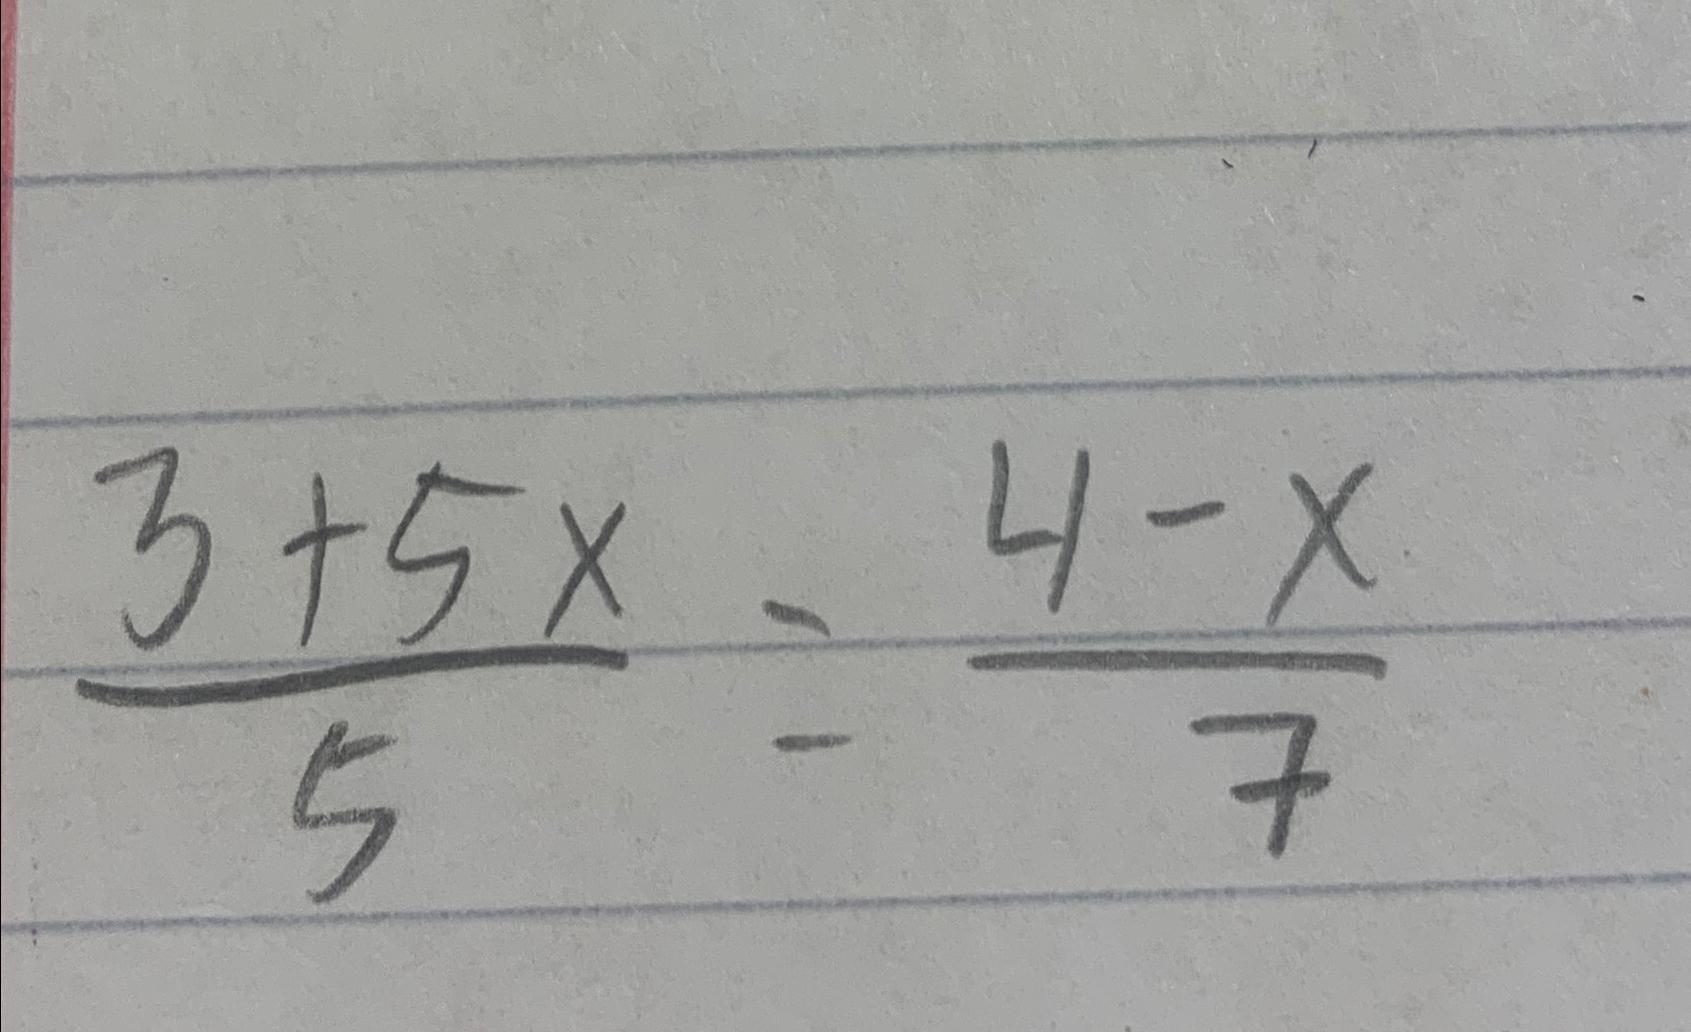 3+5x/5 = 4-x/7